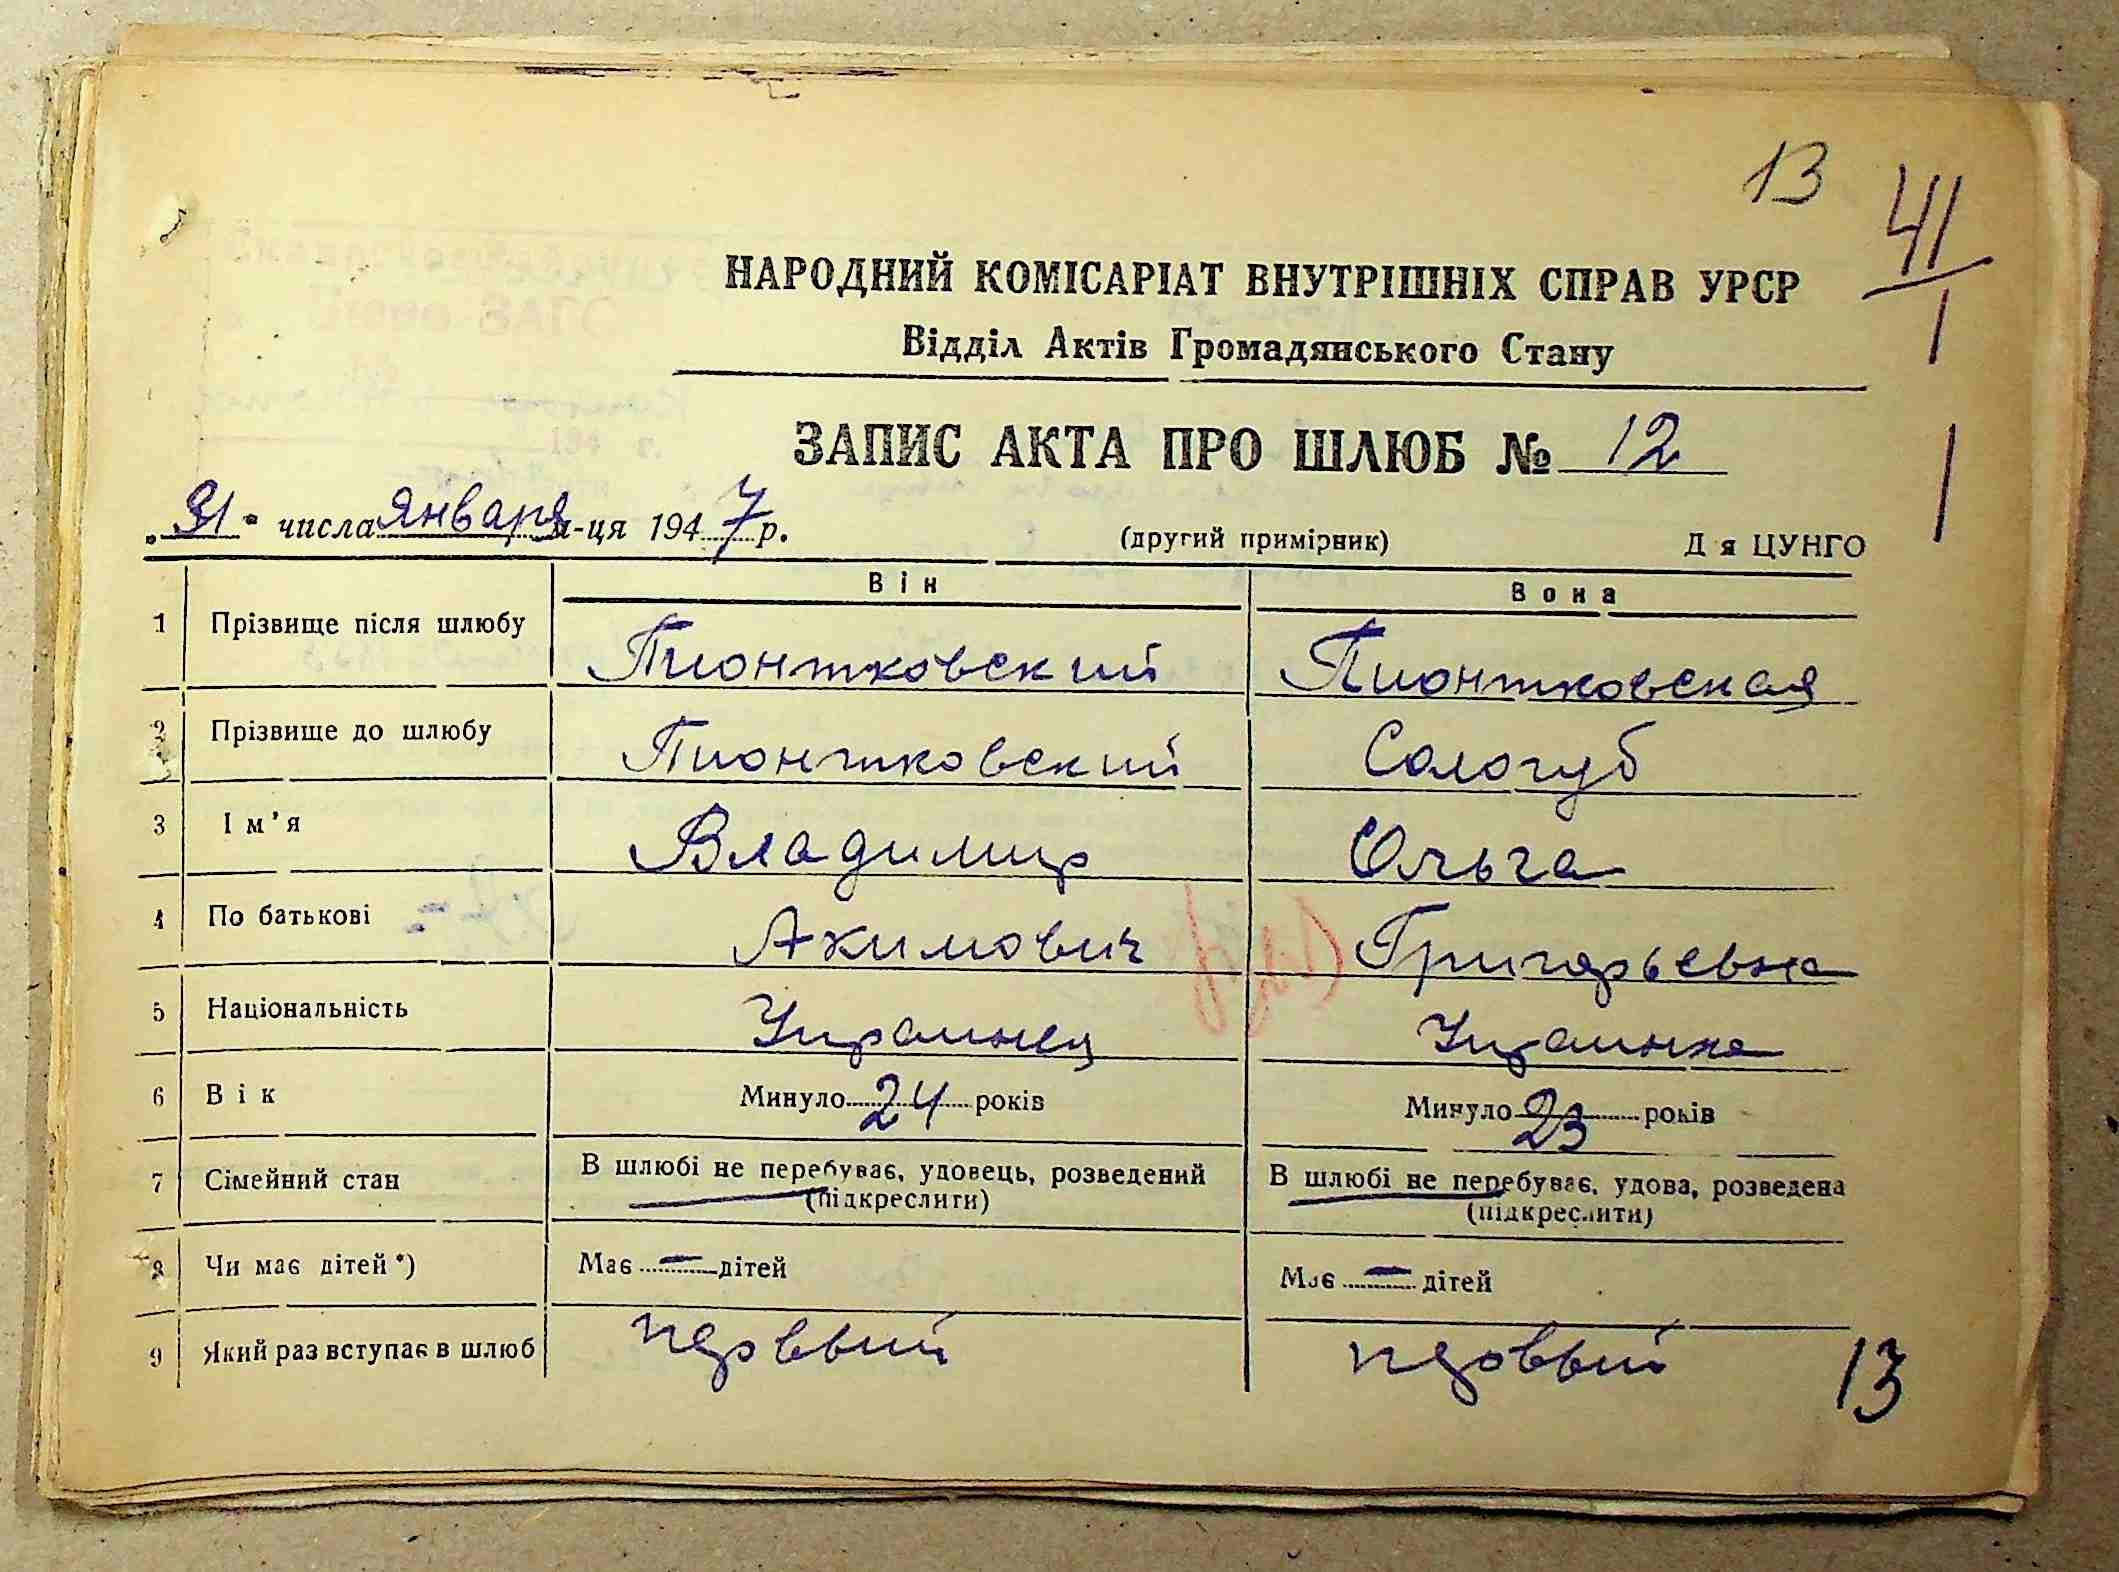 13
41
1
1
НАРОДНИЙ КОМІСАРІАТ ВНУТРІШНІХ СПРАВ УРСР
Відділ Актів Громадянського Стану
ЗАПИС АКТА ПРО ШЛЮБ № 12
„31" числа января м-ця 1947 р.
(другий примірник)
Д я ЦУНГО
Він
Вона
1 Прізвище після шлюбу Пионтковский Пионтковская
2 Прізвище до шлюбу Пионтковский Сологуб
3 Ім'я Владимир Ольга
4 По батькові Акимович Григорьевна
5 Національність Украинец Украинка
6 Вік Минуло 24 років Минуло 23 років
7 Сімейний стан В шлюбі не перебуває, удовець, розведений (підкреслити) В шлюбі не перебуває, удова, розведена (підкреслити)
8 Чи має дітей *) Має — дітей Має — дітей
9 Який раз вступає в шлюб первый первый
13